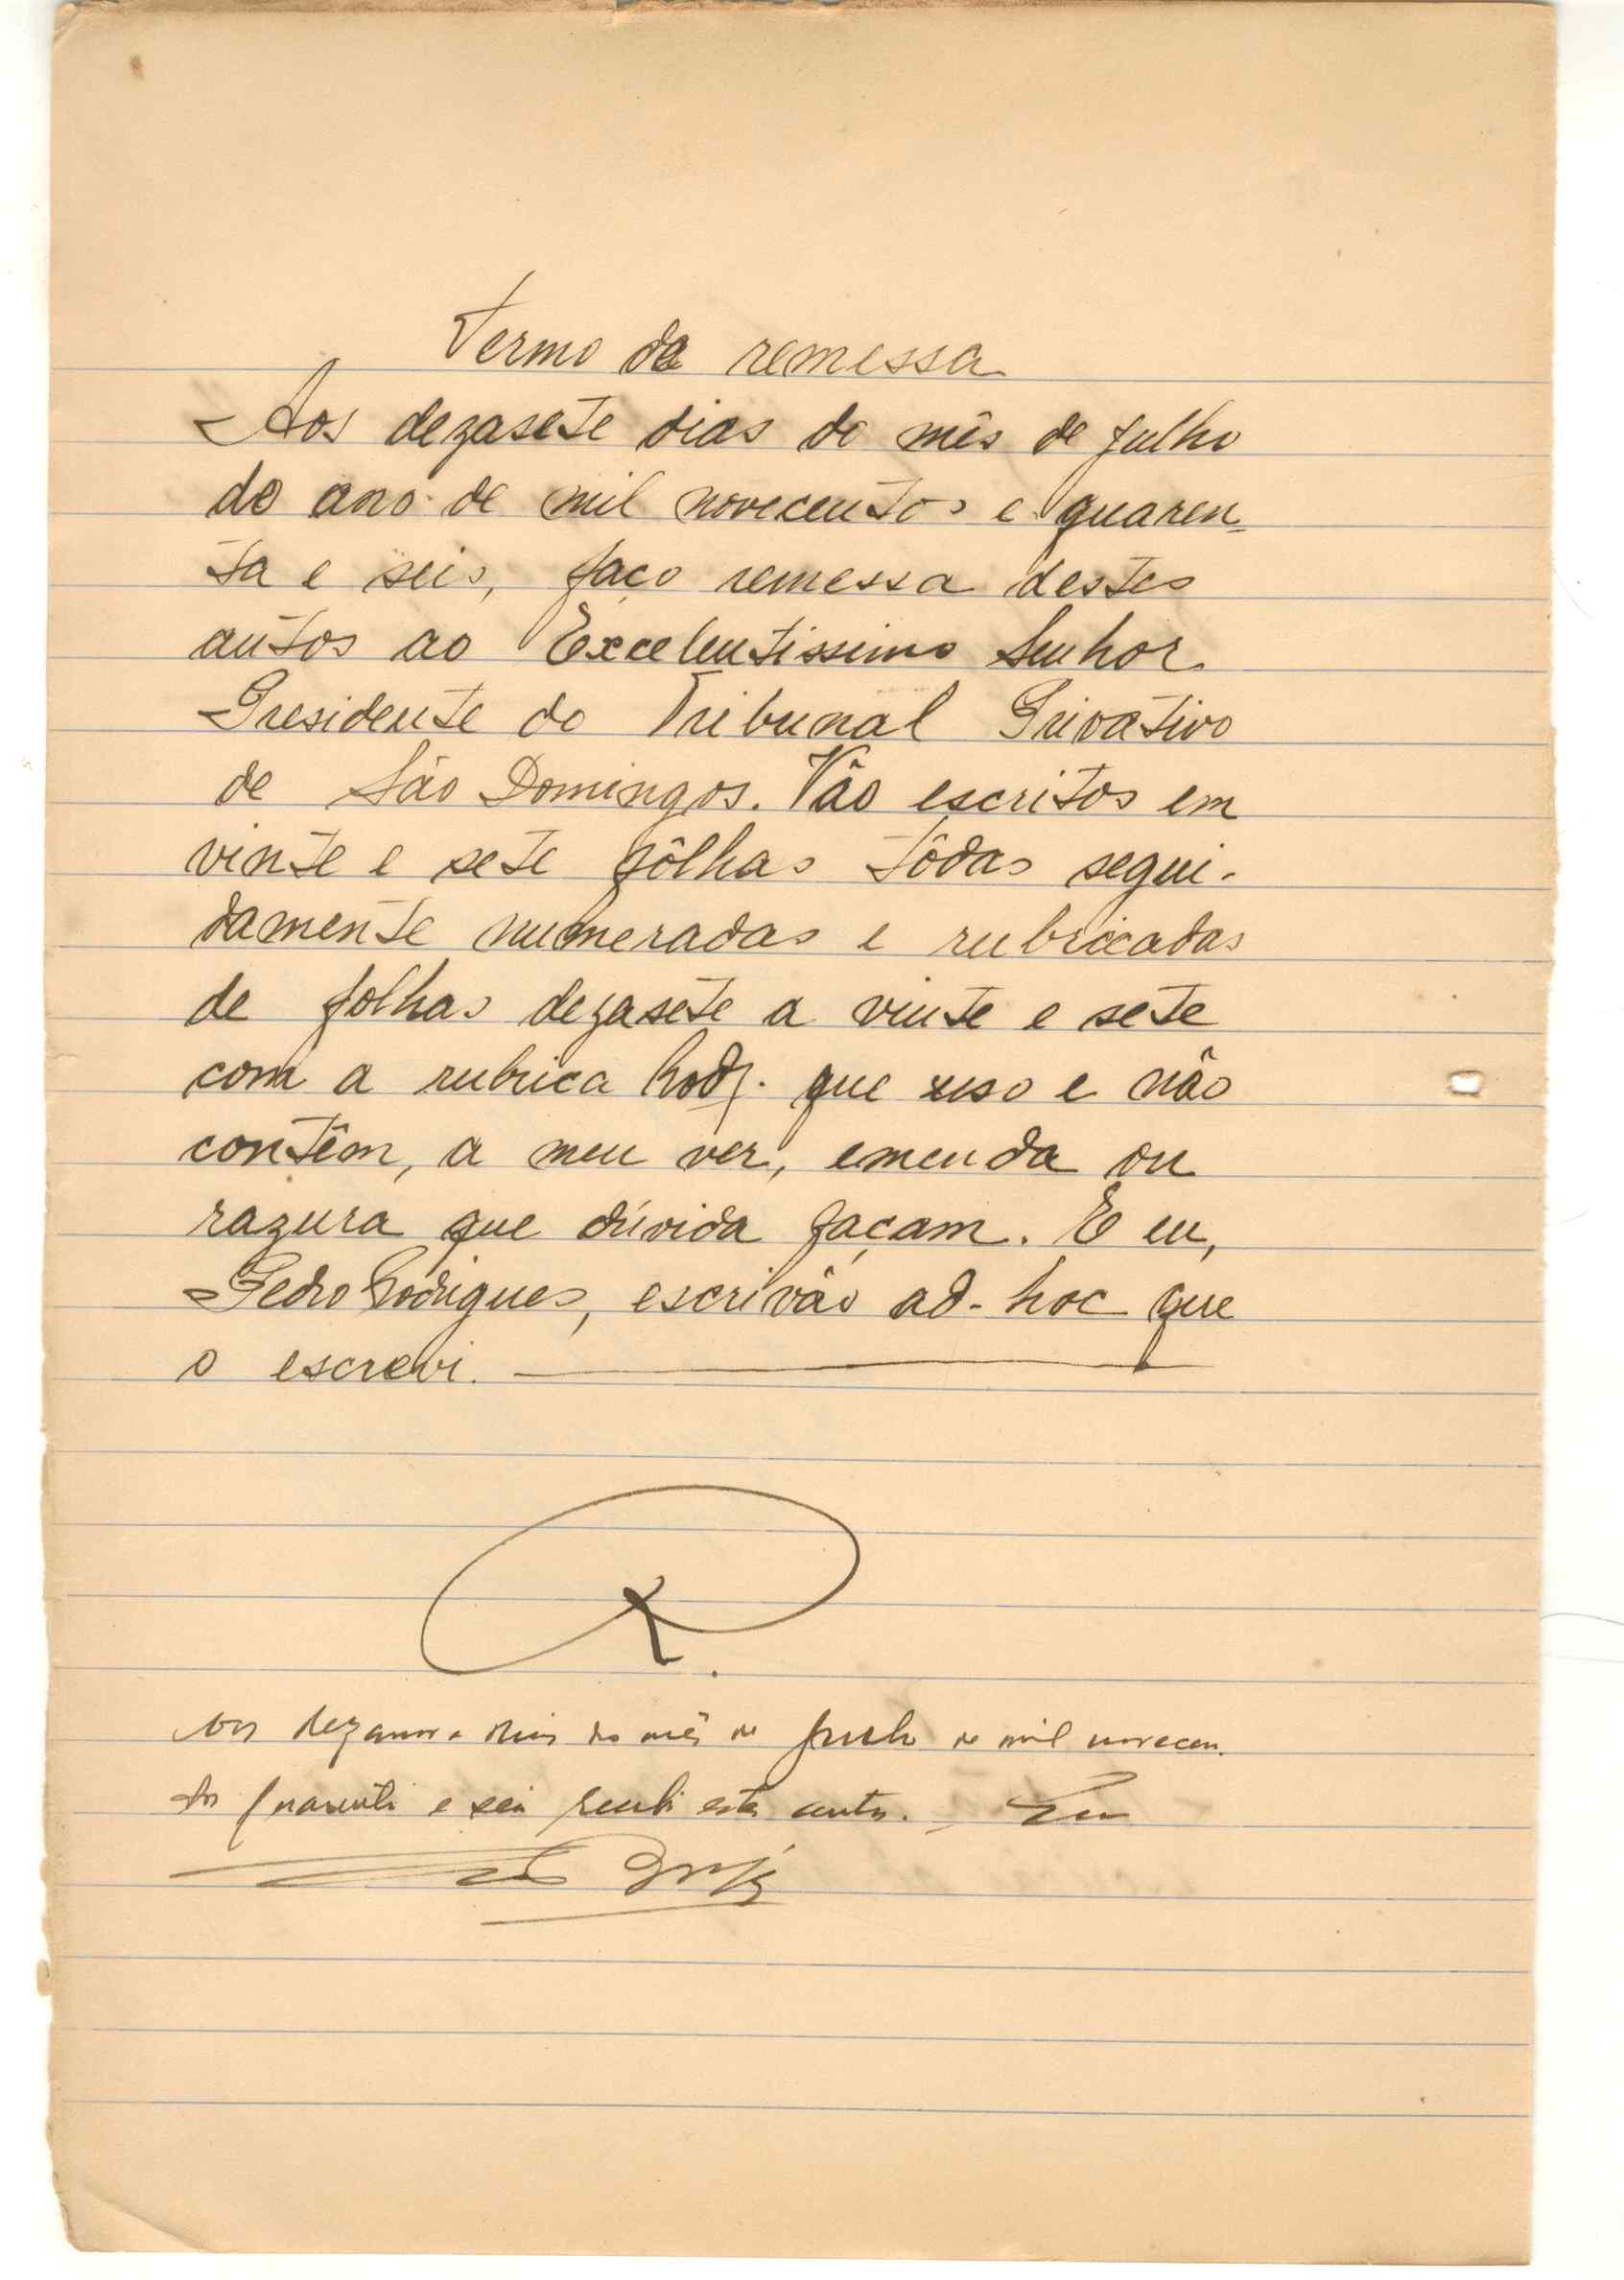 Termo de remessa
Aos dezasete dias do mês de julho
do ano de mil novecentos e quaren-
ta e seis, faço remessa destes
autos ao Excelentissimo Senhor
Presidente do Tribunal Privativo
de São Domingos. Vão escritos em
vinte e sete fôlhas tôdas segui-
damente numeradas e rubricadas
de folhas dezasete a vinte e sete
com a rubrica Rodz. que uso e não
contêm, a meu ver, emenda ou
razura que dúvida façam. E eu,
Pedro Rodrigues, escrivão ad-hoc que
o escrevi.
R.
Aos dezanove dias do mês de Julho de mil novecen-
tos quarenta e seis recebi estes autos. Eu